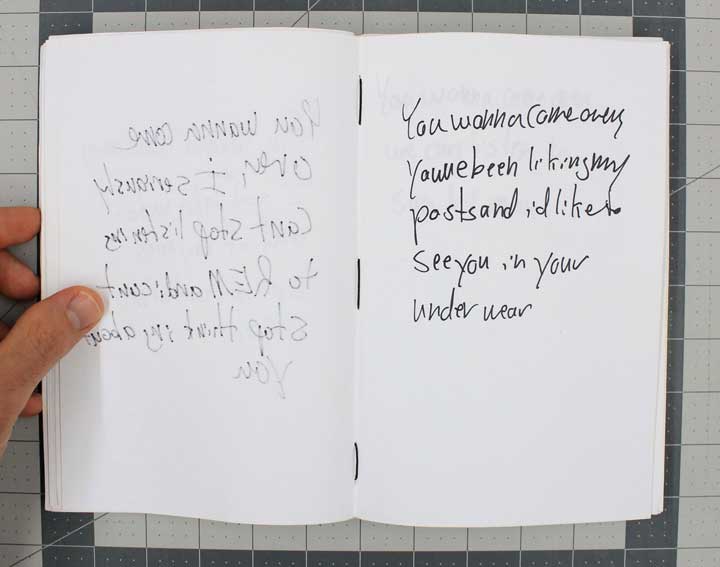 You wanna come
over, i seriously
cant stop listening
to REM and i cant
stop thinking about
you
You wanna come over,
Youve been liking my
posts and i'd like to
see you in your
under wear